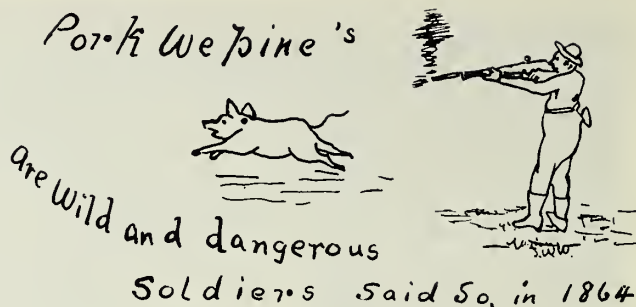 Pork We pine's
are wild and dangerous
Soldiers Said So, in 1864
S.W.W.